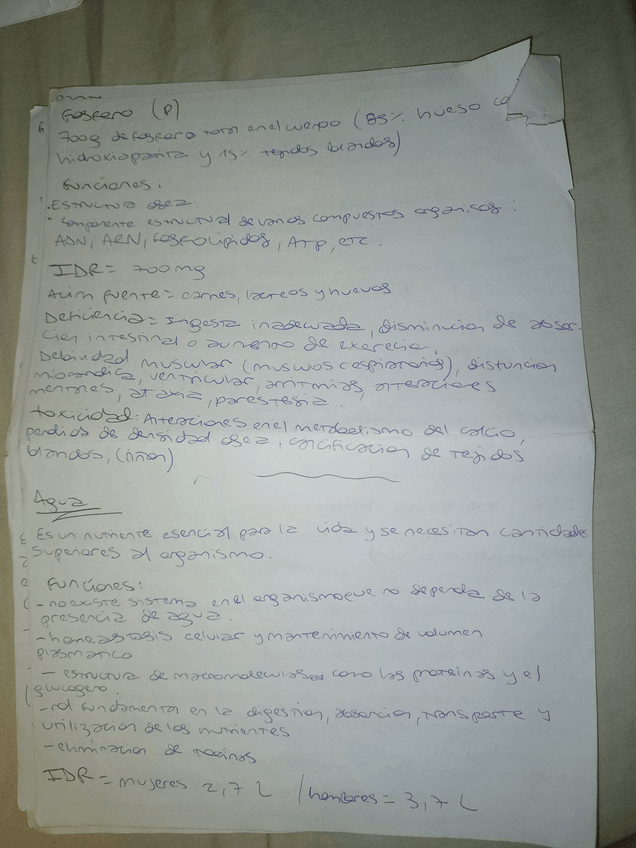 Fosforo (P)
700g de fosforo total en el cuerpo (85% hueso co
hidroxiapatita y 15% tejidos blandos)
Funciones.
- Estructura osea.
- Componente estructural de varios compuestos organicos:
ADN, ARN, Fosfolipidos, ATP, etc.
IDR = 700mg
Alim fuente = carnes, lacteos y huevos
Deficiencia = Ingesta inadecuada, disminucion de absor-
cion intestinal o aumento de excrecion.
Debilidad muscular (musculos respiratorios), disfuncion
miocardica, ventricular, arritmias, alteraciones
mentales, ataxia, parestesia.
Toxicidad: Alteraciones en el metabolismo del calcio,
perdida de densidad osea, calcificacion de tejidos
blandos, (riñon)
Agua
Es un nutriente esencial para la vida y se necesitan cantidades
superiores al organismo.
Funciones:
- no existe sistema en el organismo que no dependa de la
presencia de agua.
- homeostasis celular y mantenimiento de volumen
plasmatico
- estructura de macromoleculas como las proteinas y el
glucogeno.
- rol fundamental en la digestion, absorcion, transporte y
utilizacion de los nutrientes
- eliminacion de toxinas
IDR = mujeres 2,7 L / hombres = 3,7 L